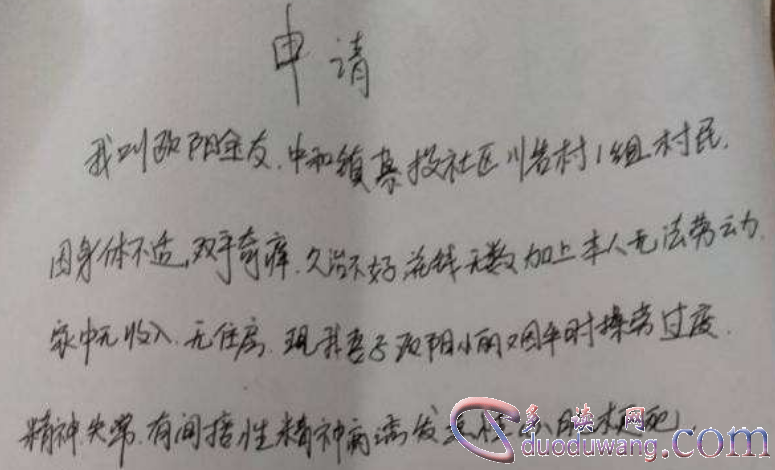 申请
我叫欧阳金友.中和镇 投社区川岩村1组村民.
因身体不适,双手奇痒.久治不好花钱无数加上本人无法劳动.
家中无收入.无住房.现我妻子欧阳小丽又因平时操劳过度.
精神失常.有间接性精神病 发 股
多读网
duoduwang.com